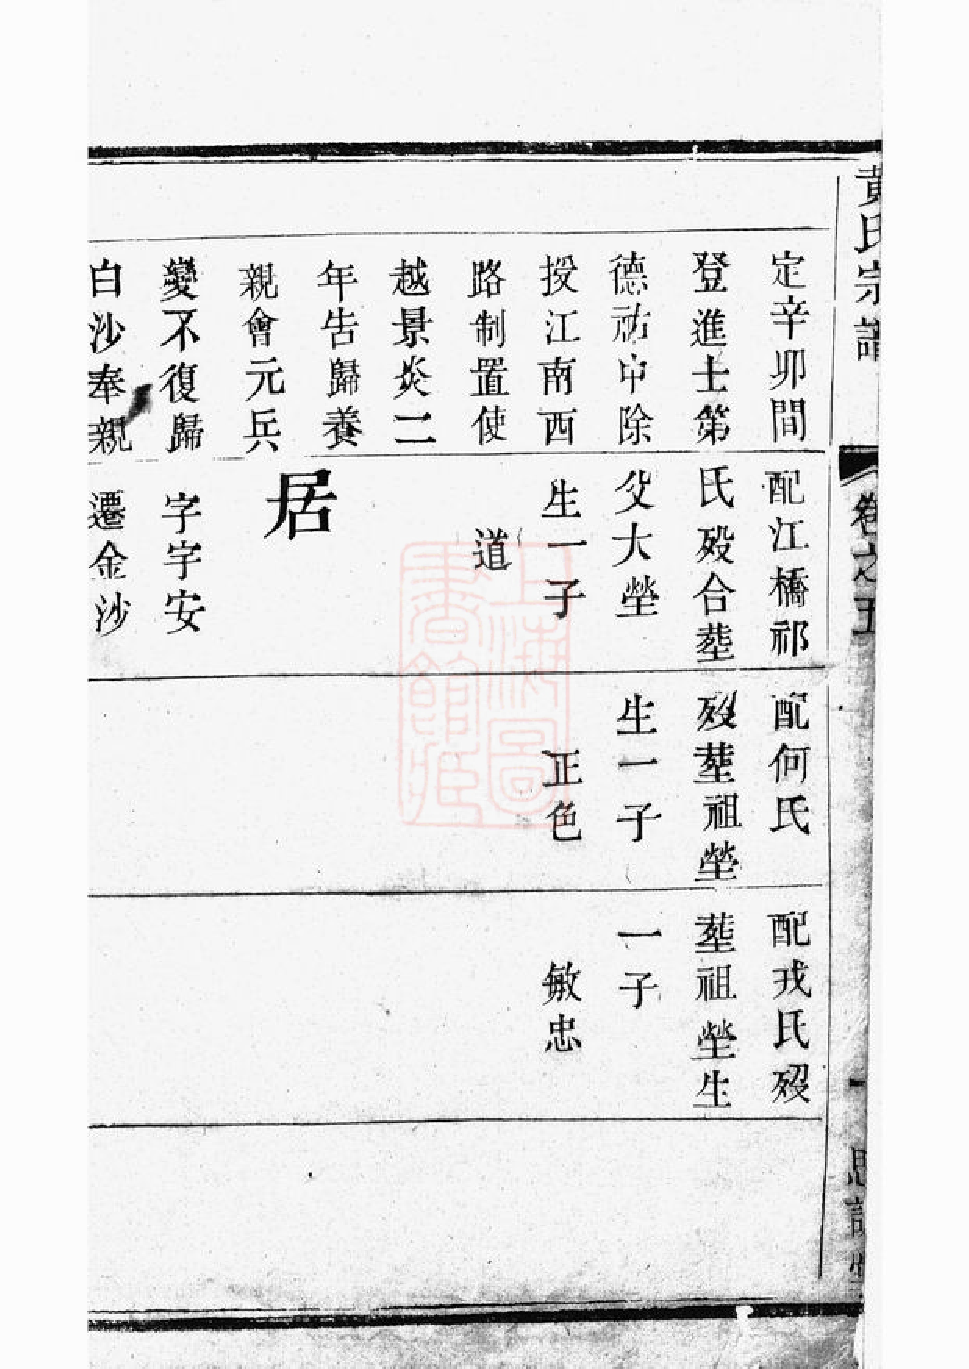 黃氏宗譜
卷之五
一
定辛卯間
登進士第
德祐中除
授江南西
路制置使
越景炎二
年告歸養
親會元兵
變不復歸
白沙奉親
配江橋祁
氏歿合塟
父大塋
生一子
道
居
字宇安
遷金沙
配何氏
歿塟祖塋
生一子
正色
配戎氏歿
塟祖塋生
一子
敏忠
上海圖書館藏